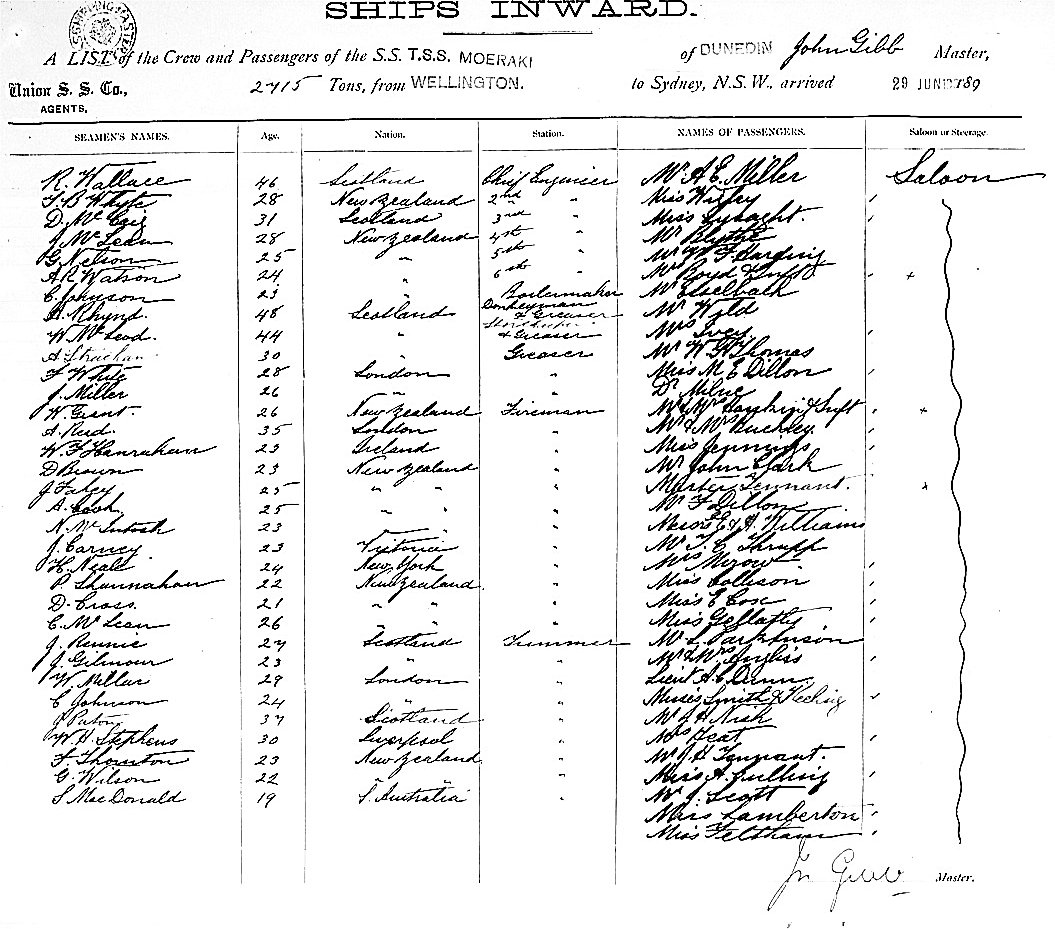 SHIPS INWARD.
A LIST of the Crew and Passengers of the S.S. T.S.S. MOERAKI of DUNEDIN John Gibb Master,
Union S. S. Co., 2715 Tons, from WELLINGTON. to Sydney, N.S.W., arrived 29 JUN
AGENTS.
SEAMEN'S NAMES. Age. Nation. Station. NAMES OF PASSENGERS. Saloon or Steerage.
R. Wallace 46 Scotland Chief Engineer Mr A. E. Miller Saloon
Whyte 28 New Zealand 2nd " Miss '
D. Mc 31 Scotland 3rd " Miss Lysaght. '
J. McLean 28 New Zealand 4th " Mr Blythe '
G. Nelson 25 " 5th " Mr W. F. Harding
A. R. Watson 24 " 6th " Boyd ' +
C. Johnson 23 " Boilermaker Mr
A. Rhynd 48 Scotland Donkeyman & Greaser Mr Wyld
W. McLeod. 44 " Storekeeper & Greaser Mrs Ivey '
A. Strachan 30 " Greaser Mr W. Thomas
F. White 28 London " Miss M. E. Dillon '
J. Miller 26 " " Dr Milne
W. Grant. 26 New Zealand Fireman Mr & Mrs ' +
A. Reid. 35 London " Mr & Mrs Buckley '
W. F. Hanrahan 23 Ireland " Miss Jennings '
D Brown 23 New Zealand " Mr John Clark
J. Fahey 25 " " " Master Tennant. ' +
A. Cook 25 " " " Mr F Dillon
N. McIntosh 23 " " " Messrs E & A. Williams
J. Carney 23 Victoria " Mr Thrupp
H. Neale 24 New York " Mrs '
P. Shannahan 22 New Zealand " Miss Collison '
D. Cross. 21 " " " Miss E Cox '
C. McLean 26 " " " Miss Gellatly '
J. Rennie 27 Scotland Trimmer Mr S. Parkinson
J. Gilmour 23 " " Mr & Mrs Angliss '
W. Millar 29 London " Lieut A. C. Dunn
C Johnson 24 " " Misses Smith & Keeling '
J Paton 37 Scotland " Mr J. H. Nish
W. H. Stephens 30 Liverpool " Mrs '
F. Thornton 23 New Zealand " Mr J. H. Tennant.
G. Wilson 22 " " " Miss A. '
S MacDonald 19 S. Australia " Mr J. Scott
Miss Lamberton '
Miss Feltham '
Jn Gibb Master.